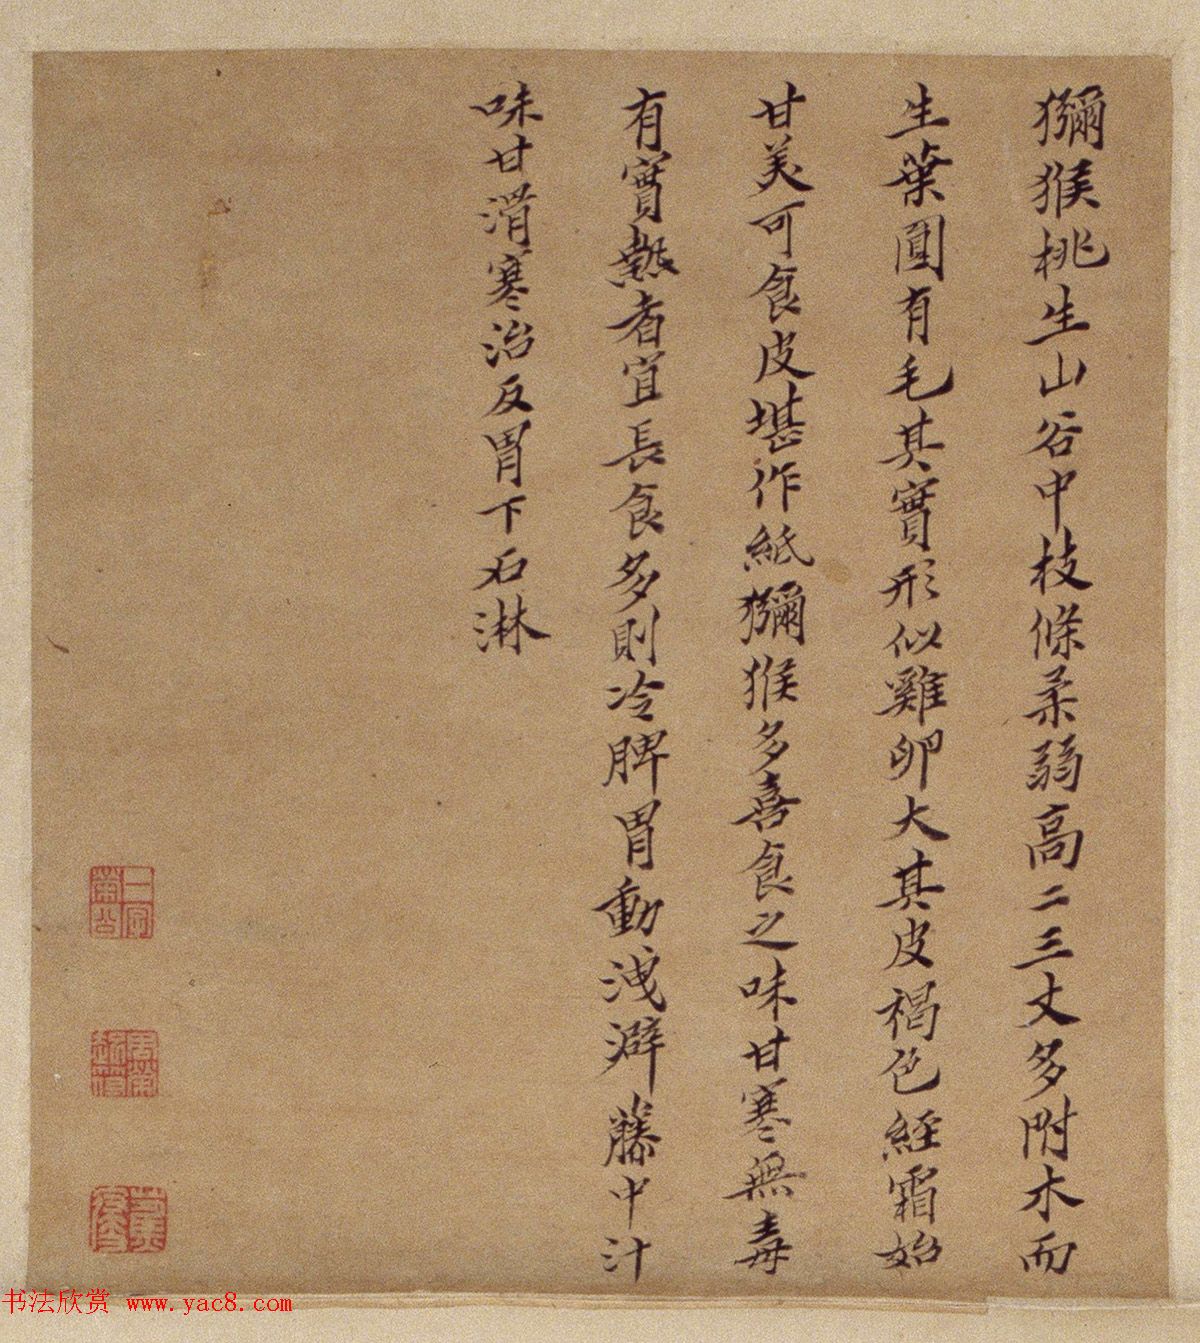 獼猴桃生山谷中枝條柔弱高二三丈多附木而
生葉圓有毛其實形似雞卵大其皮褐色經霜始
甘美可食皮堪作紙獼猴多喜食之味甘寒無毒
有實熱者宜長食多則冷脾胃動洩澼藤中汁
味甘滑寒治反胃下石淋
书法欣赏 www.yac8.com